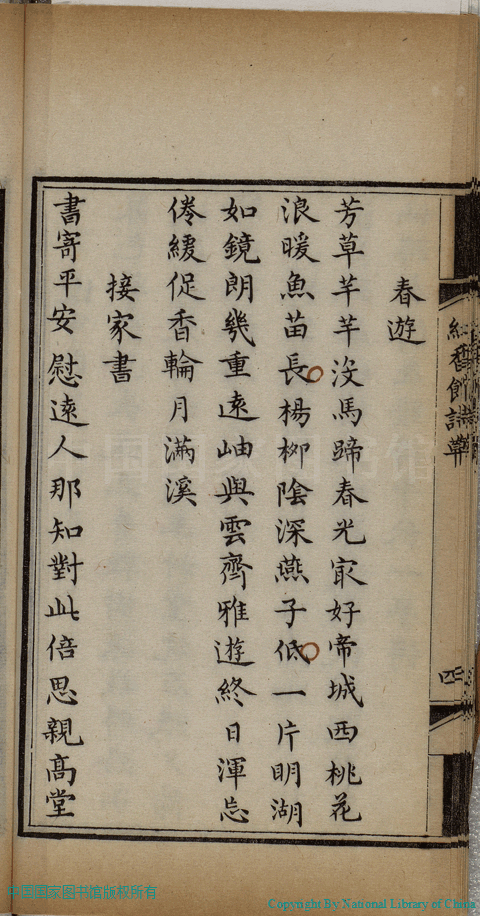 春遊
芳草芊芊没馬蹄春光冣好帝城西桃花
浪暖魚苗長楊柳陰深燕子低一片明湖
如鏡朗幾重遠岫與雲齊雅遊終日渾忘
倦緩促香輪月滿溪
接家書
書寄平安慰遠人那知對此倍思親高堂
紅香館詩草
四
中国国家图书馆版权所有
Copyright By National Library of China